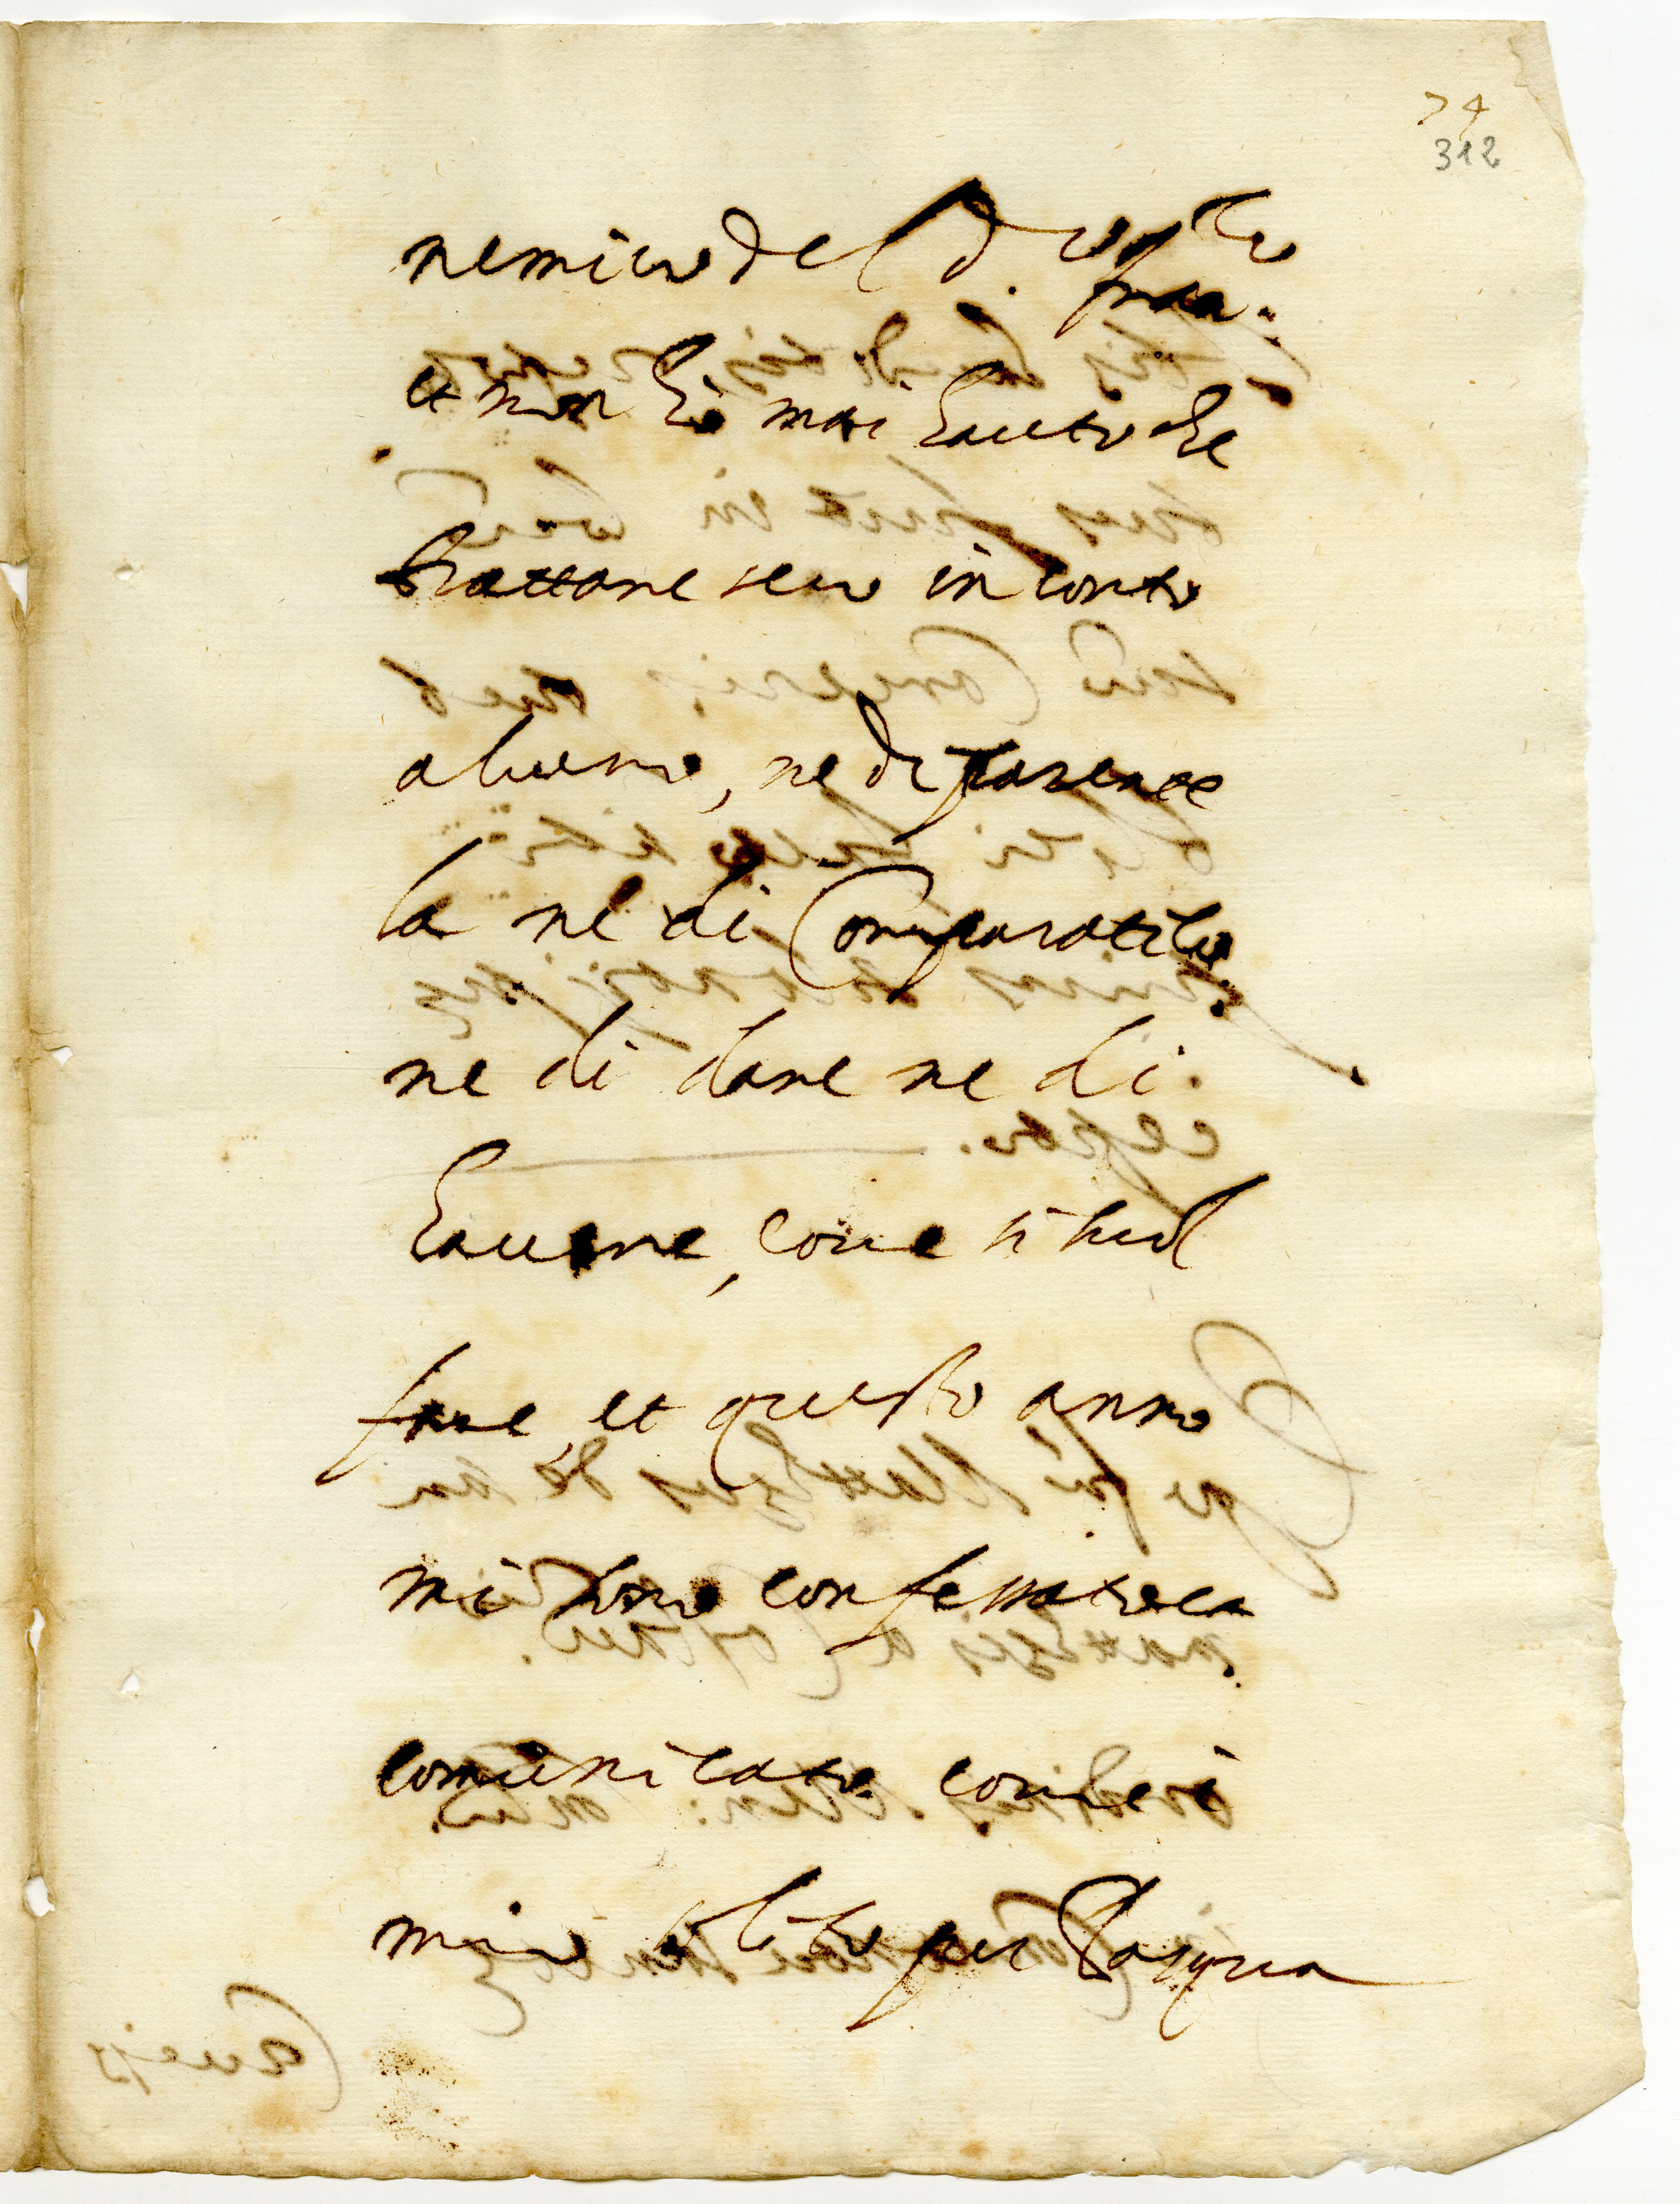 74
312
nemico del d.
et non hò mai hauuto che
trattare seco in conto
alcuno, ne di parente
la ne di Comparatico
ne di dare ne di
hauere, come si suol
fare, et questo anno
mi sono confessato et
comunicato come è
mio solito per Pasqua